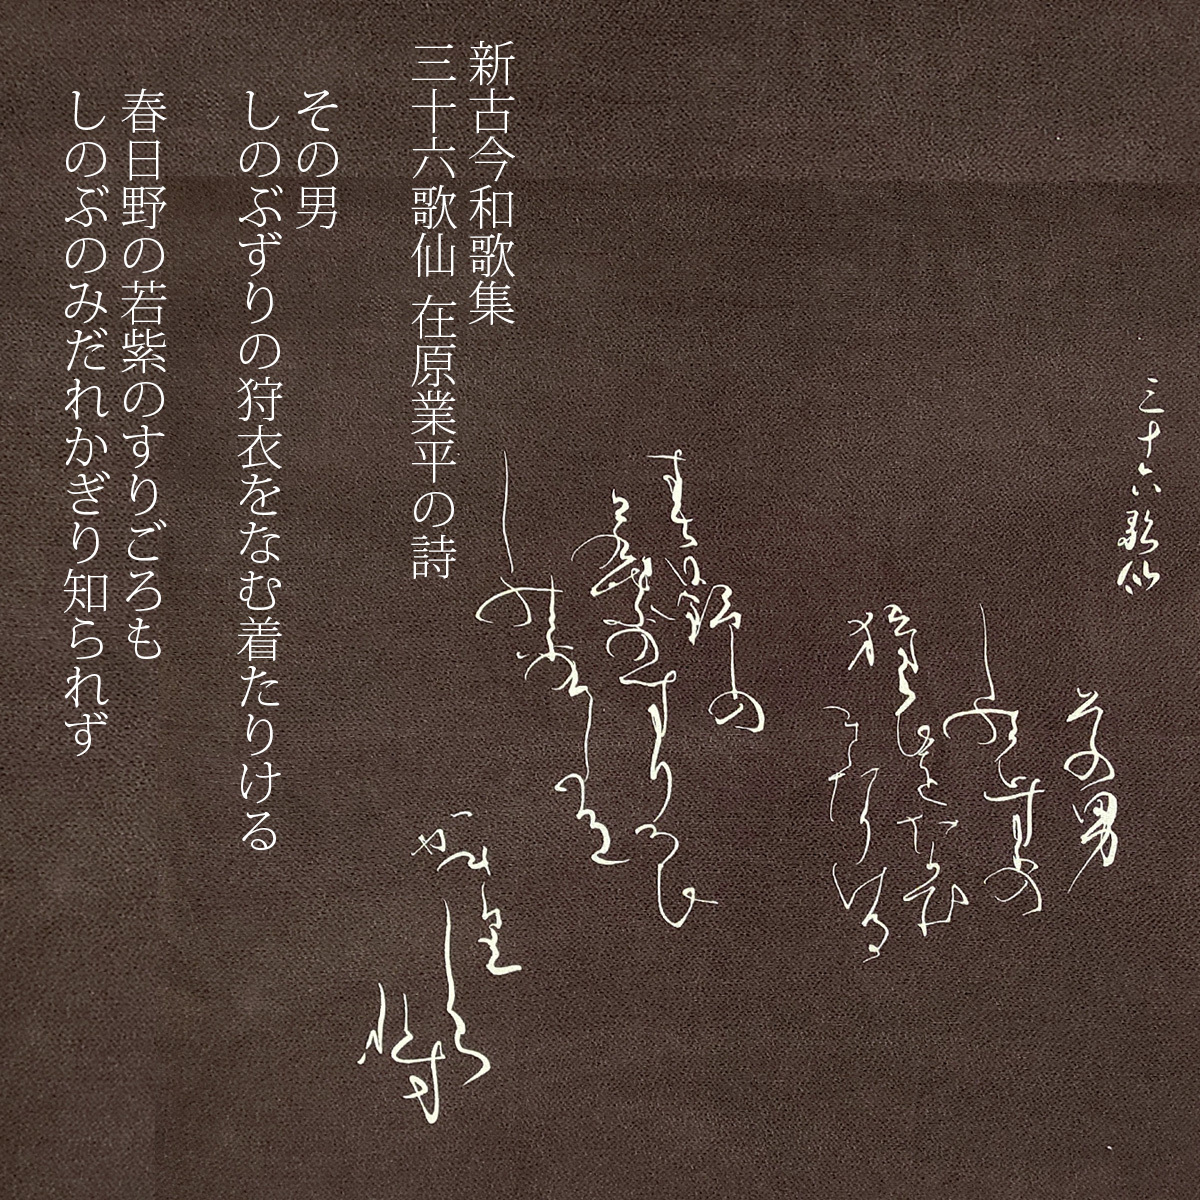 三十六歌仙
その男
しのぶずりの
狩衣をなむ
きたりける
春日野の
若紫のすりころも
しのふのみたれ
かきり
しられす
新古今和歌集
三十六歌仙 在原業平の詩
その男
しのぶずりの狩衣をなむ着たりける
春日野の若紫のすりごろも
しのぶのみだれかぎり知られず